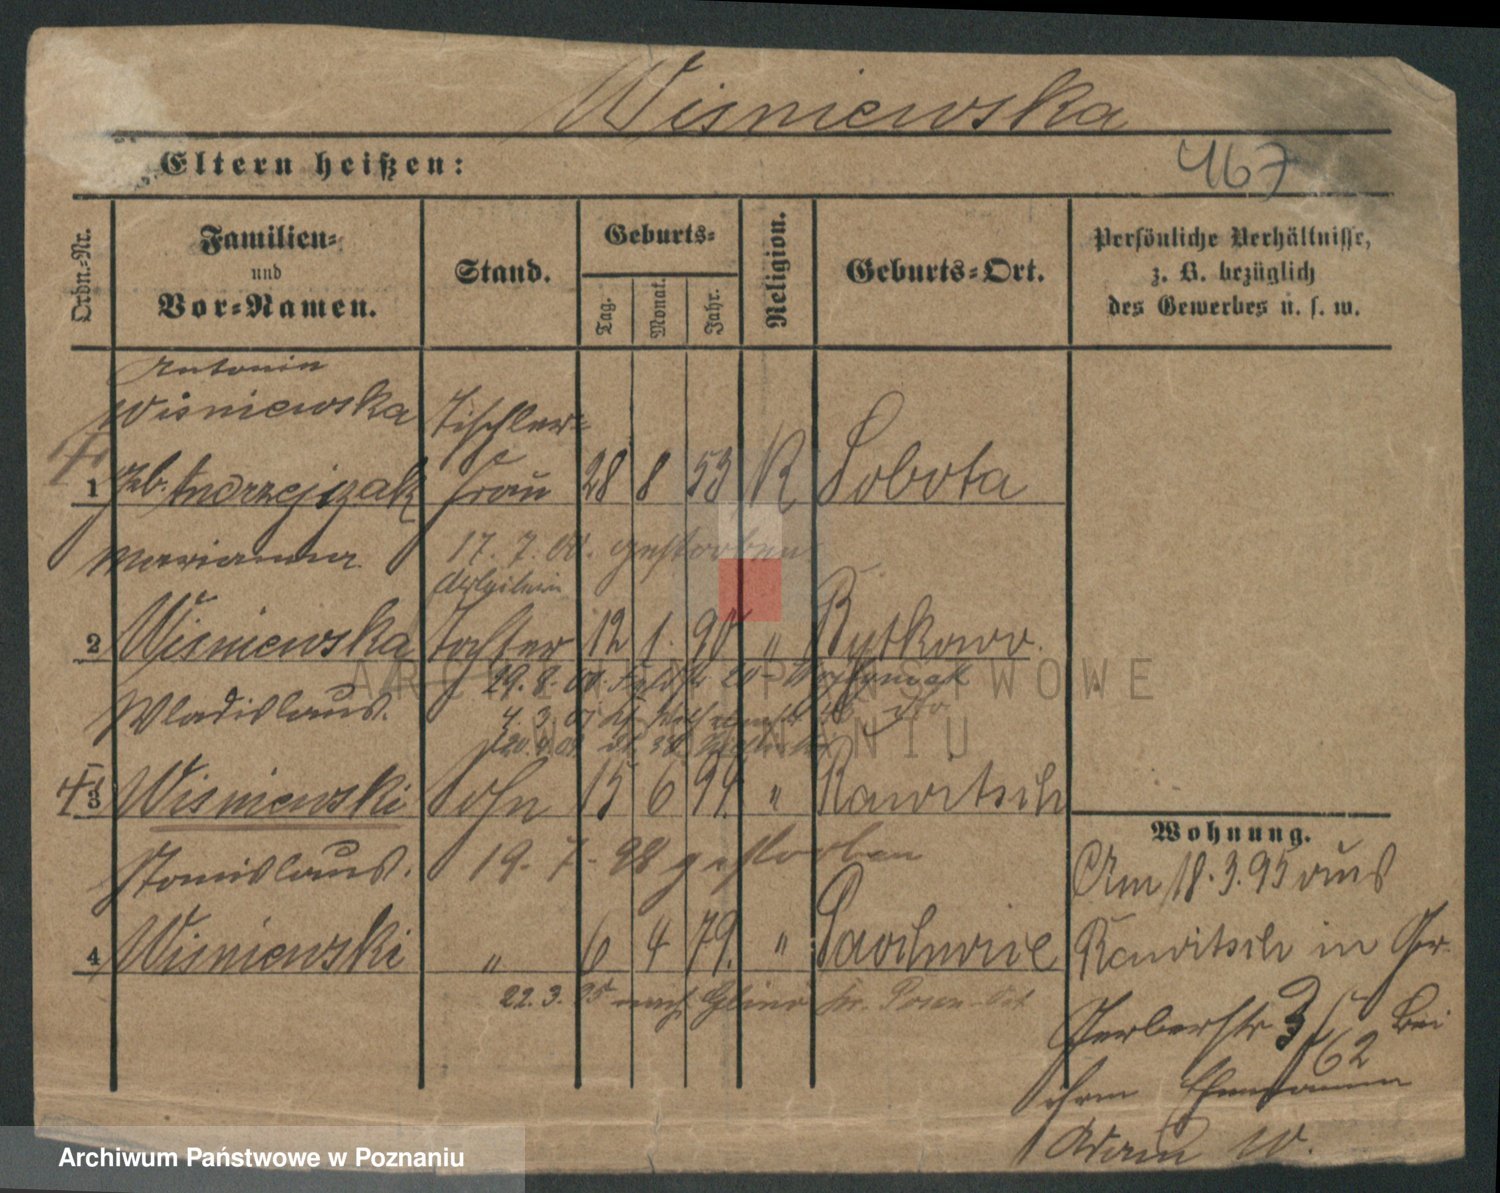 Wisniewska
Eltern heißen:
467
Ordn.-Nr.
Familien-
und
Vor-Namen.
Stand.
Geburts-
Tag.
Monat.
Jahr.
Religion.
Geburts-Ort.
Persönliche Verhältnisse,
z. B. bezüglich
des Gewerbes u. s. w.
Antonin
Wisniewska Tischler-
1 geb. Andrzejczak frau 28 8 53 K Sobota
Marianna 17. 7. 00. gestorben
Arbeiterin
2 Wisniewska Tochter 12 1. 90 " Rytkowo.
29. 8. 00. 20
Wladislaus. 4. 3. 01 dto
3 Wisniewski Sohn 15 6 94. " Rawitsch
Stanislaus. 19. 7. 98 gestorben
4 Wisniewski " 6 4 79. "
22. 3. 95 nach Glinno Kr. Posen Ost
Wohnung.
Am 18. 3. 95 aus
Rawitsch in Gr.
Gerberstr 3 bei
62
ihrem Ehemann
Adam W.
ARCHIWUM PAŃSTWOWE
W POZNANIU
Archiwum Państwowe w Poznaniu